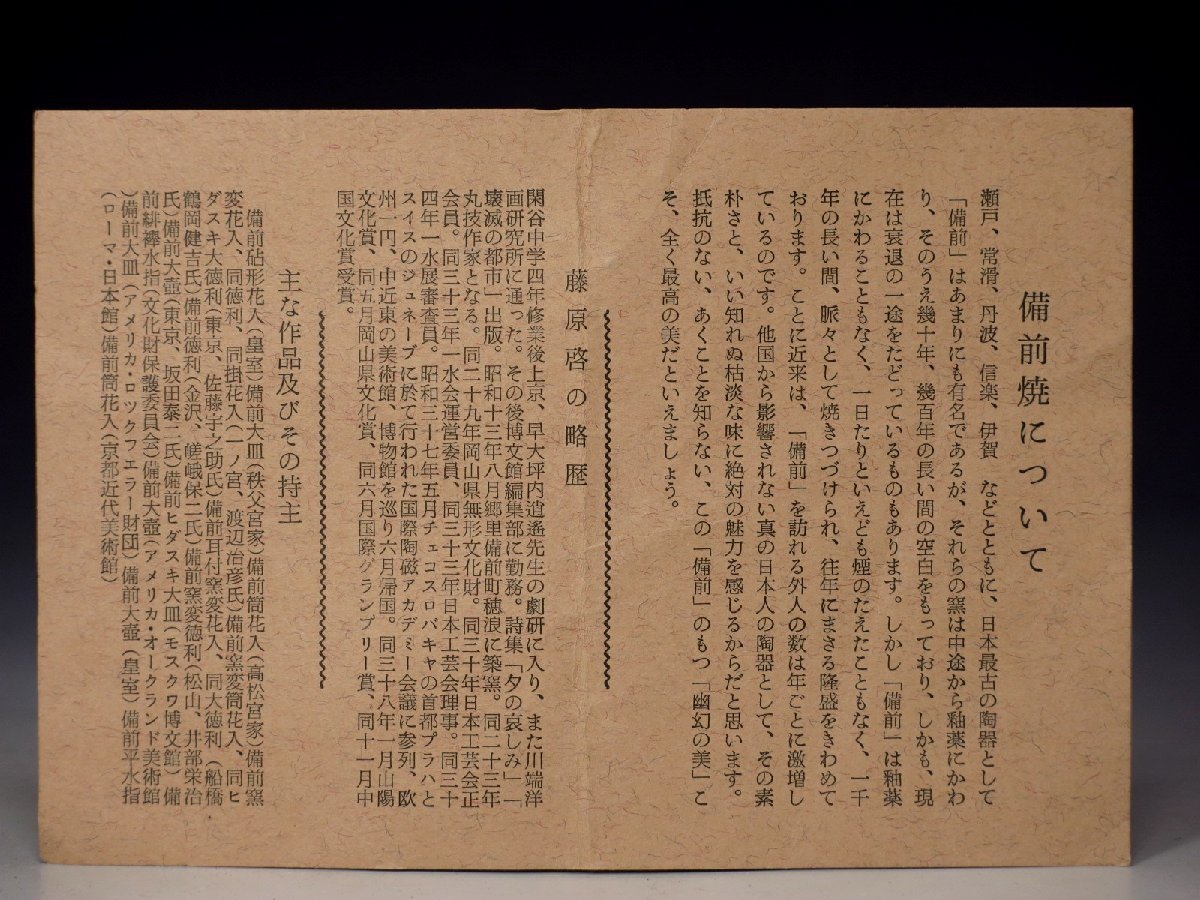 備前焼について
瀬戸、常滑、丹波、信楽、伊賀　などとともに、日本最古の陶器として
「備前」はあまりにも有名であるが、それらの窯は中途から釉薬にかわ
り、そのうえ幾十年、幾百年の長い間の空白をもっており、しかも、現
在は衰退の一途をたどっているものもあります。しかし「備前」は釉薬
にかわることもなく、一日たりといえども煙のたえたこともなく、一千
年の長い間、脈々として焼きつづけられ、往年にまさる隆盛をきわめて
おります。ことに近来は、「備前」を訪れる外人の数は年ごとに激増し
ているのです。他国から影響されない真の日本人の陶器として、その素
朴さと、いい知れぬ枯淡な味に絶対の魅力を感じるからだと思います。
抵抗のない、あくことを知らない、この「備前」のもつ「幽幻の美」こ
そ、全く最高の美だといえましょう。
藤原啓の略歴
閑谷中学四年修業後上京、早大坪内逍遙先生の劇研に入り、また川端洋
画研究所に通った。その後博文館編集部に勤務。詩集「夕の哀しみ」「
壊滅の都市」出版。昭和十三年八月郷里備前町穂浪に築窯。同二十三年
丸技作家となる。同二十九年岡山県無形文化財。同三十年日本工芸会正
会員。同三十三年一水会運営委員、同三十三年日本工芸会理事。同三十
四年一水展審査員。昭和三十七年五月チェコスロバキャの首都プラハと
スイスのジュネーブに於て行われた国際陶磁アカデミー会議に参列、欧
州一円、中近東の美術館、博物館を巡り六月帰国。同三十八年一月山陽
文化賞、同五月岡山県文化賞、同六月国際グランプリー賞、同十一月中
国文化賞受賞。
主な作品及びその持主
備前砧形花入(皇室)備前大皿(秩父宮家)備前筒花入(高松宮家)備前窯
変花入、同徳利、同掛花入(一ノ宮、渡辺治彦氏)備前窯変筒花入、同ヒ
ダスキ大徳利(東京、佐藤宇之助氏)備前耳付窯変花入、同大徳利(船橋・
鶴岡健吉氏)備前徳利(金沢、嵯峨保二氏)備前窯変徳利(松山、井部栄治
氏)備前大壷(東京、坂田泰二氏)備前ヒダスキ大皿(モスクワ博文館)備
前緋襷水指(文化財保護委員会)備前大壷(アメリカ・オークランド美術館
)備前大皿(アメリカ・ロックフェラー財団)備前大壷(皇室)備前平水指
(ローマ・日本館)備前筒花入(京都近代美術館)